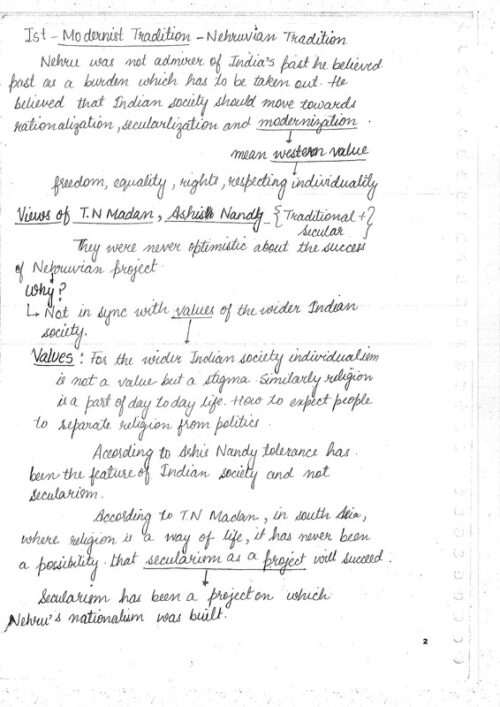 Ist - Modernist Tradition - Nehruvian Tradition
Nehru was not admirer of India's past he believed
past as a burden which has to be taken out. He
believed that Indian society should move towards
rationalization, secularlization and modernization.
mean western value
freedom, equality, rights, respecting individuality
Views of T.N Madan, Ashish Nandy {Traditional +
Secular}
They were never optimistic about the success
of Nehruvian project.
Why?
Not in sync with values of the wider Indian
society.
Values: For the wider Indian society individualism
is not a value but a stigma. Similarly religion
is a part of day to day life. How to expect people
to separate religion from politics.
According to Ashis Nandy tolerance has
been the feature of Indian society and not
secularism.
According to T.N Madan, in south Asia,
where religion is a way of life, it has never been
a possibility that secularism as a project will succeed.
Secularism has been a project on which
Nehru's nationalism was built.
2